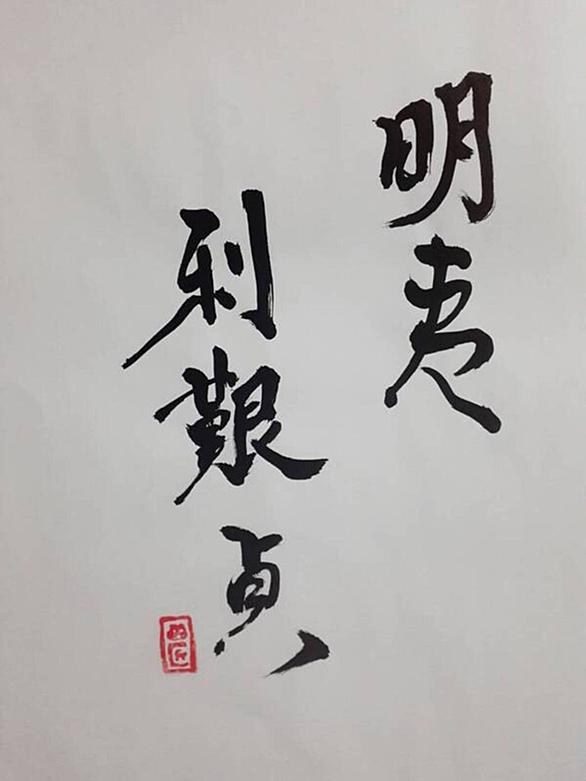 明夷
利艱貞